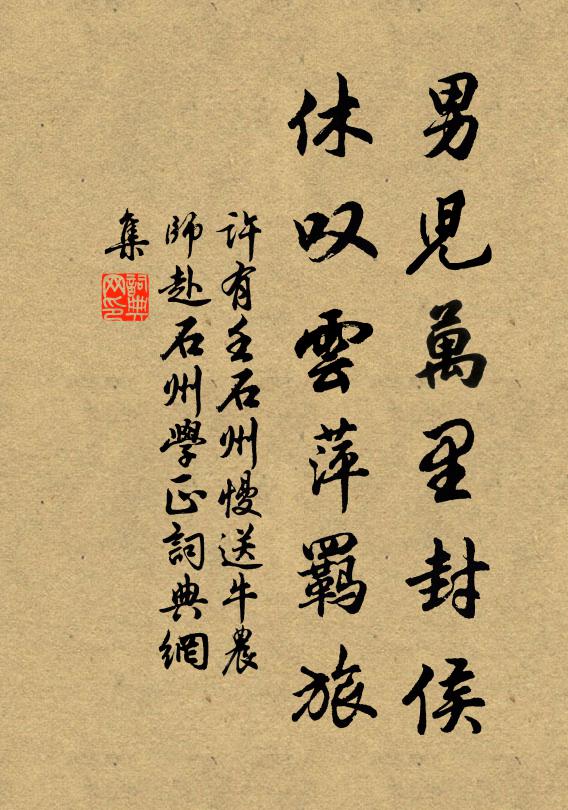 男児萬里封侯
休叹雲萍羈旅
許有壬石州慢送牛農
師赴石州學正詞典網
集
詞典网印